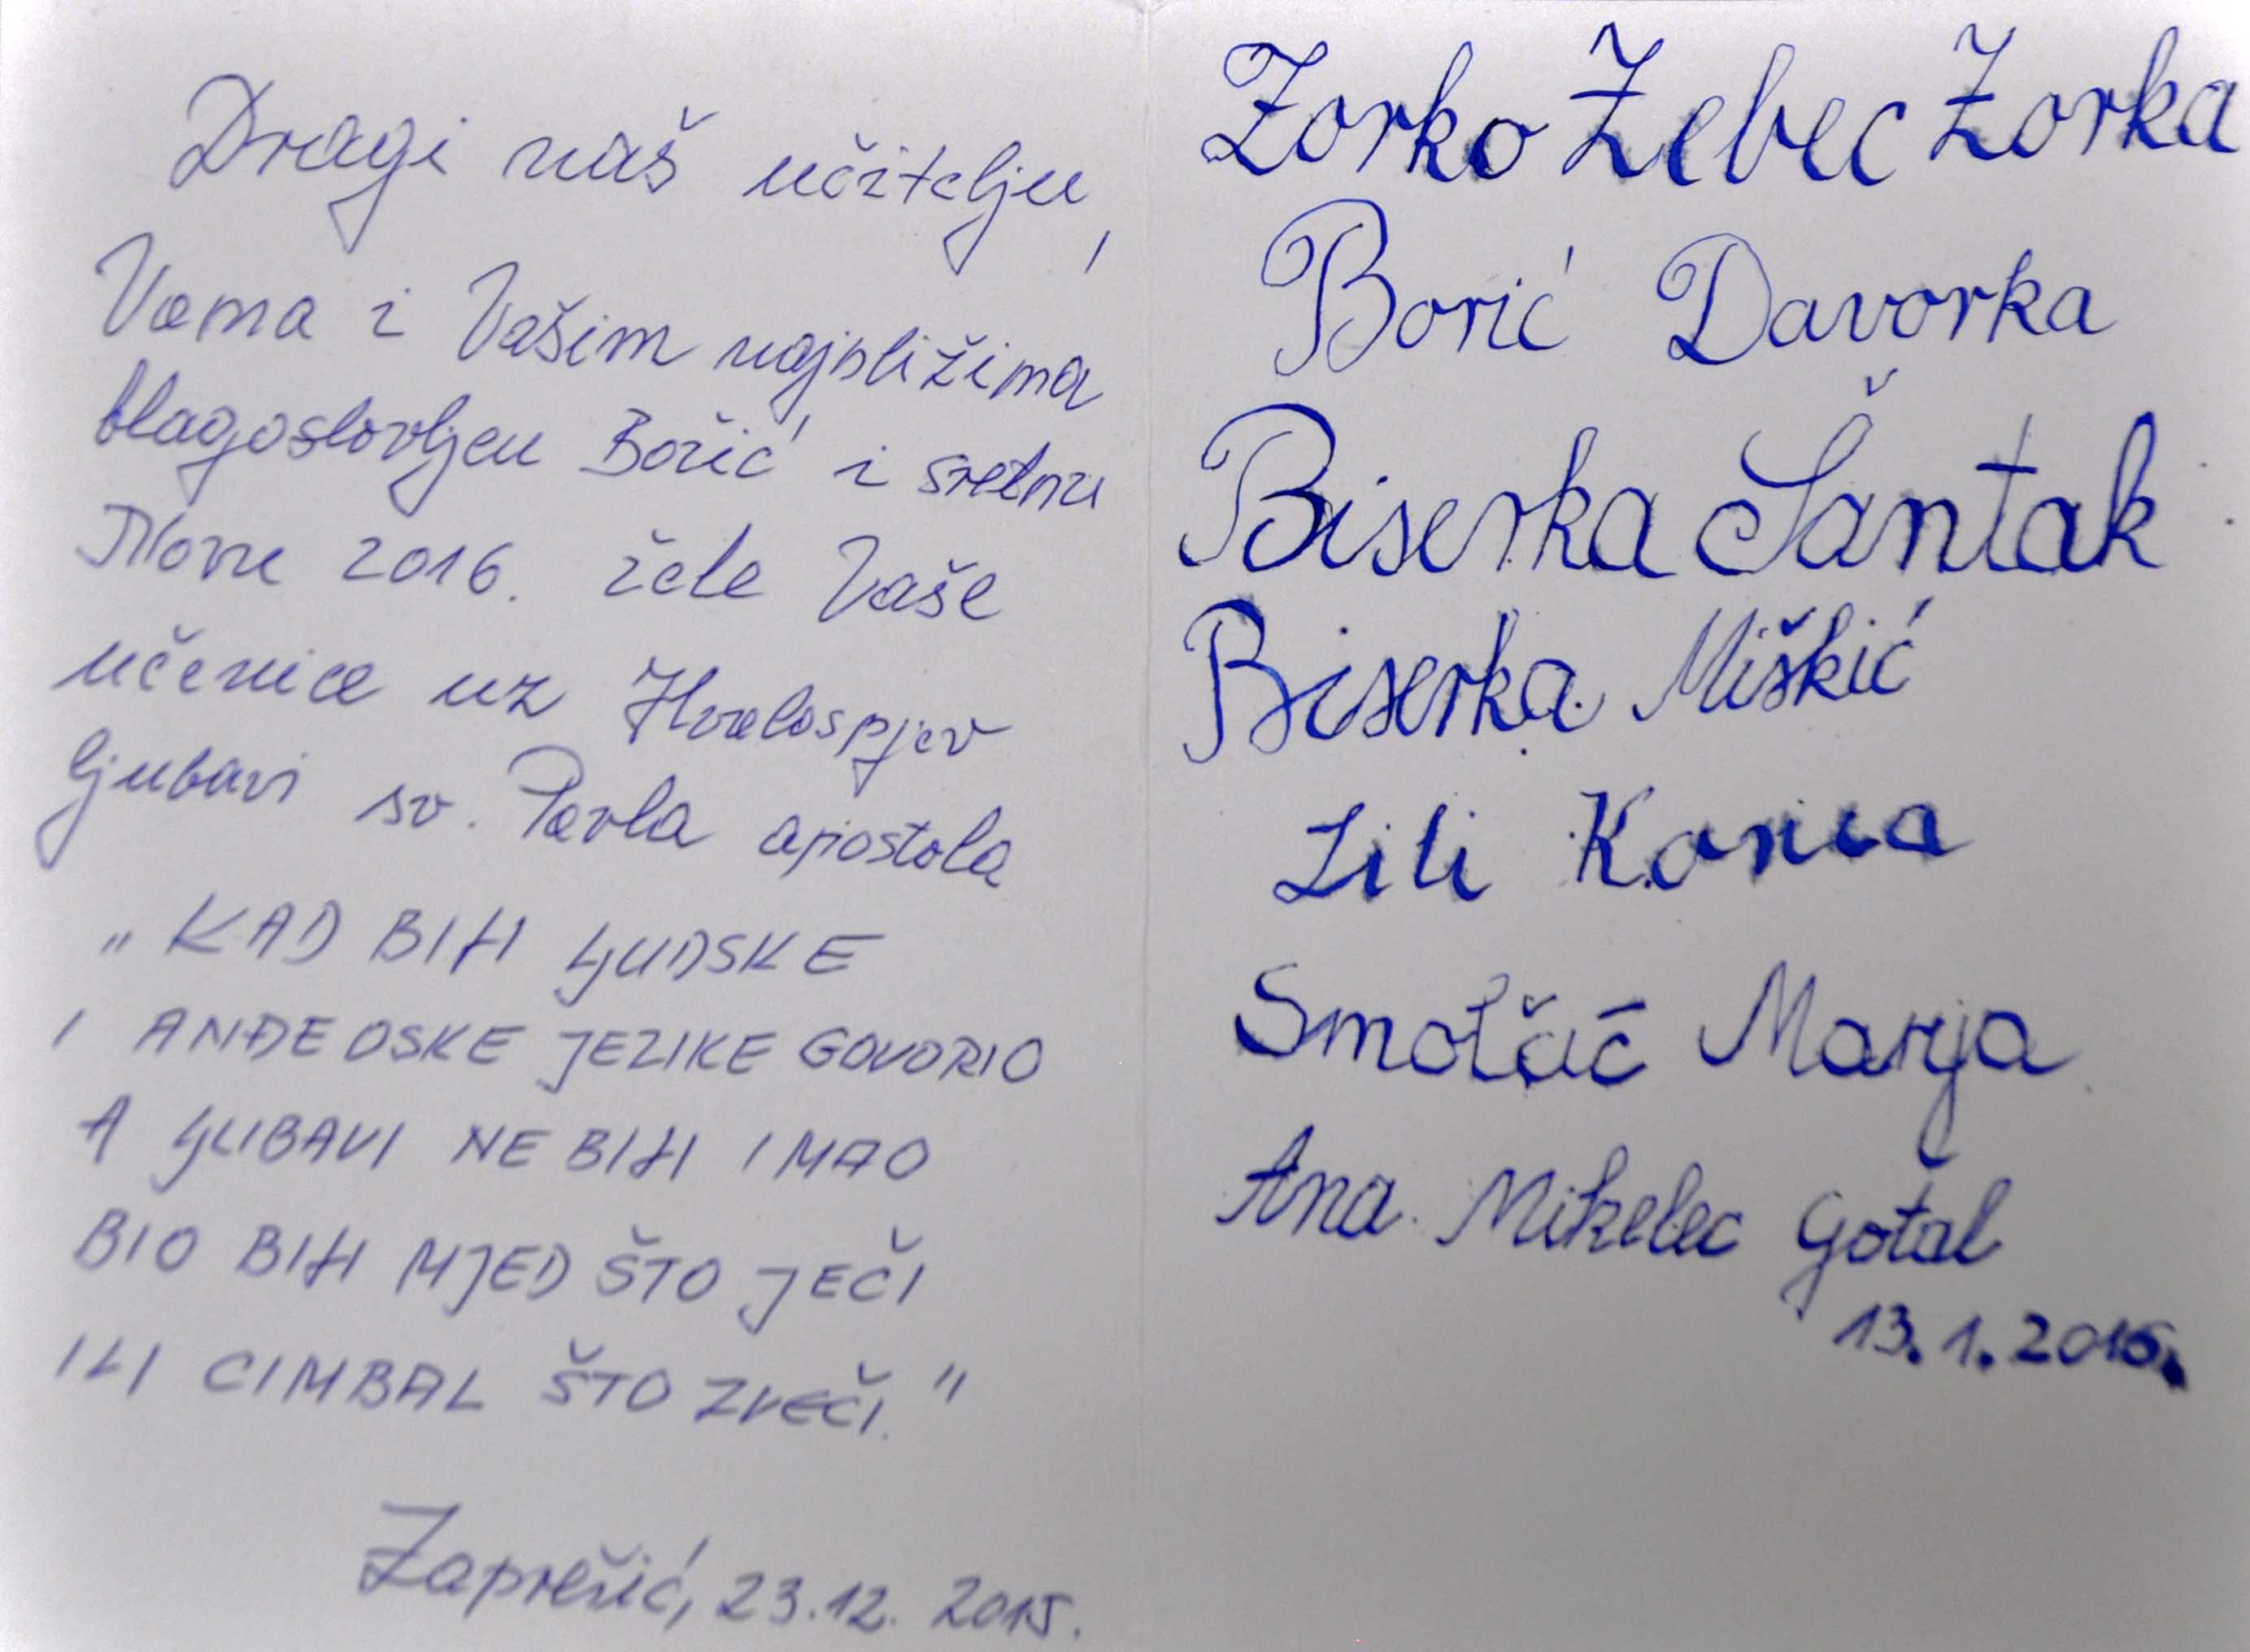 Dragi naš učitelju,
Vama i Vašim najbližima
blagoslovljen Božić i sretnu
Novu 2016. žele Vaše
učenice uz Hvalospjev
ljubavi sv. Pavla apostola
„KAD BIH LJUDSKE
I ANĐEOSKE JEZIKE GOVORIO
A LJUBAVI NE BIH IMAO
BIO BIH MJED ŠTO JEČI
ILI CIMBAL ŠTO ZVEČI."
Zaprešić, 23.12. 2015.
Zorko Žebec Zorka
Borić Davorka
Biserka Šantak
Biserka Miškić
Lili
Marija
Ana Mikelec Gotal
13.1.2016.